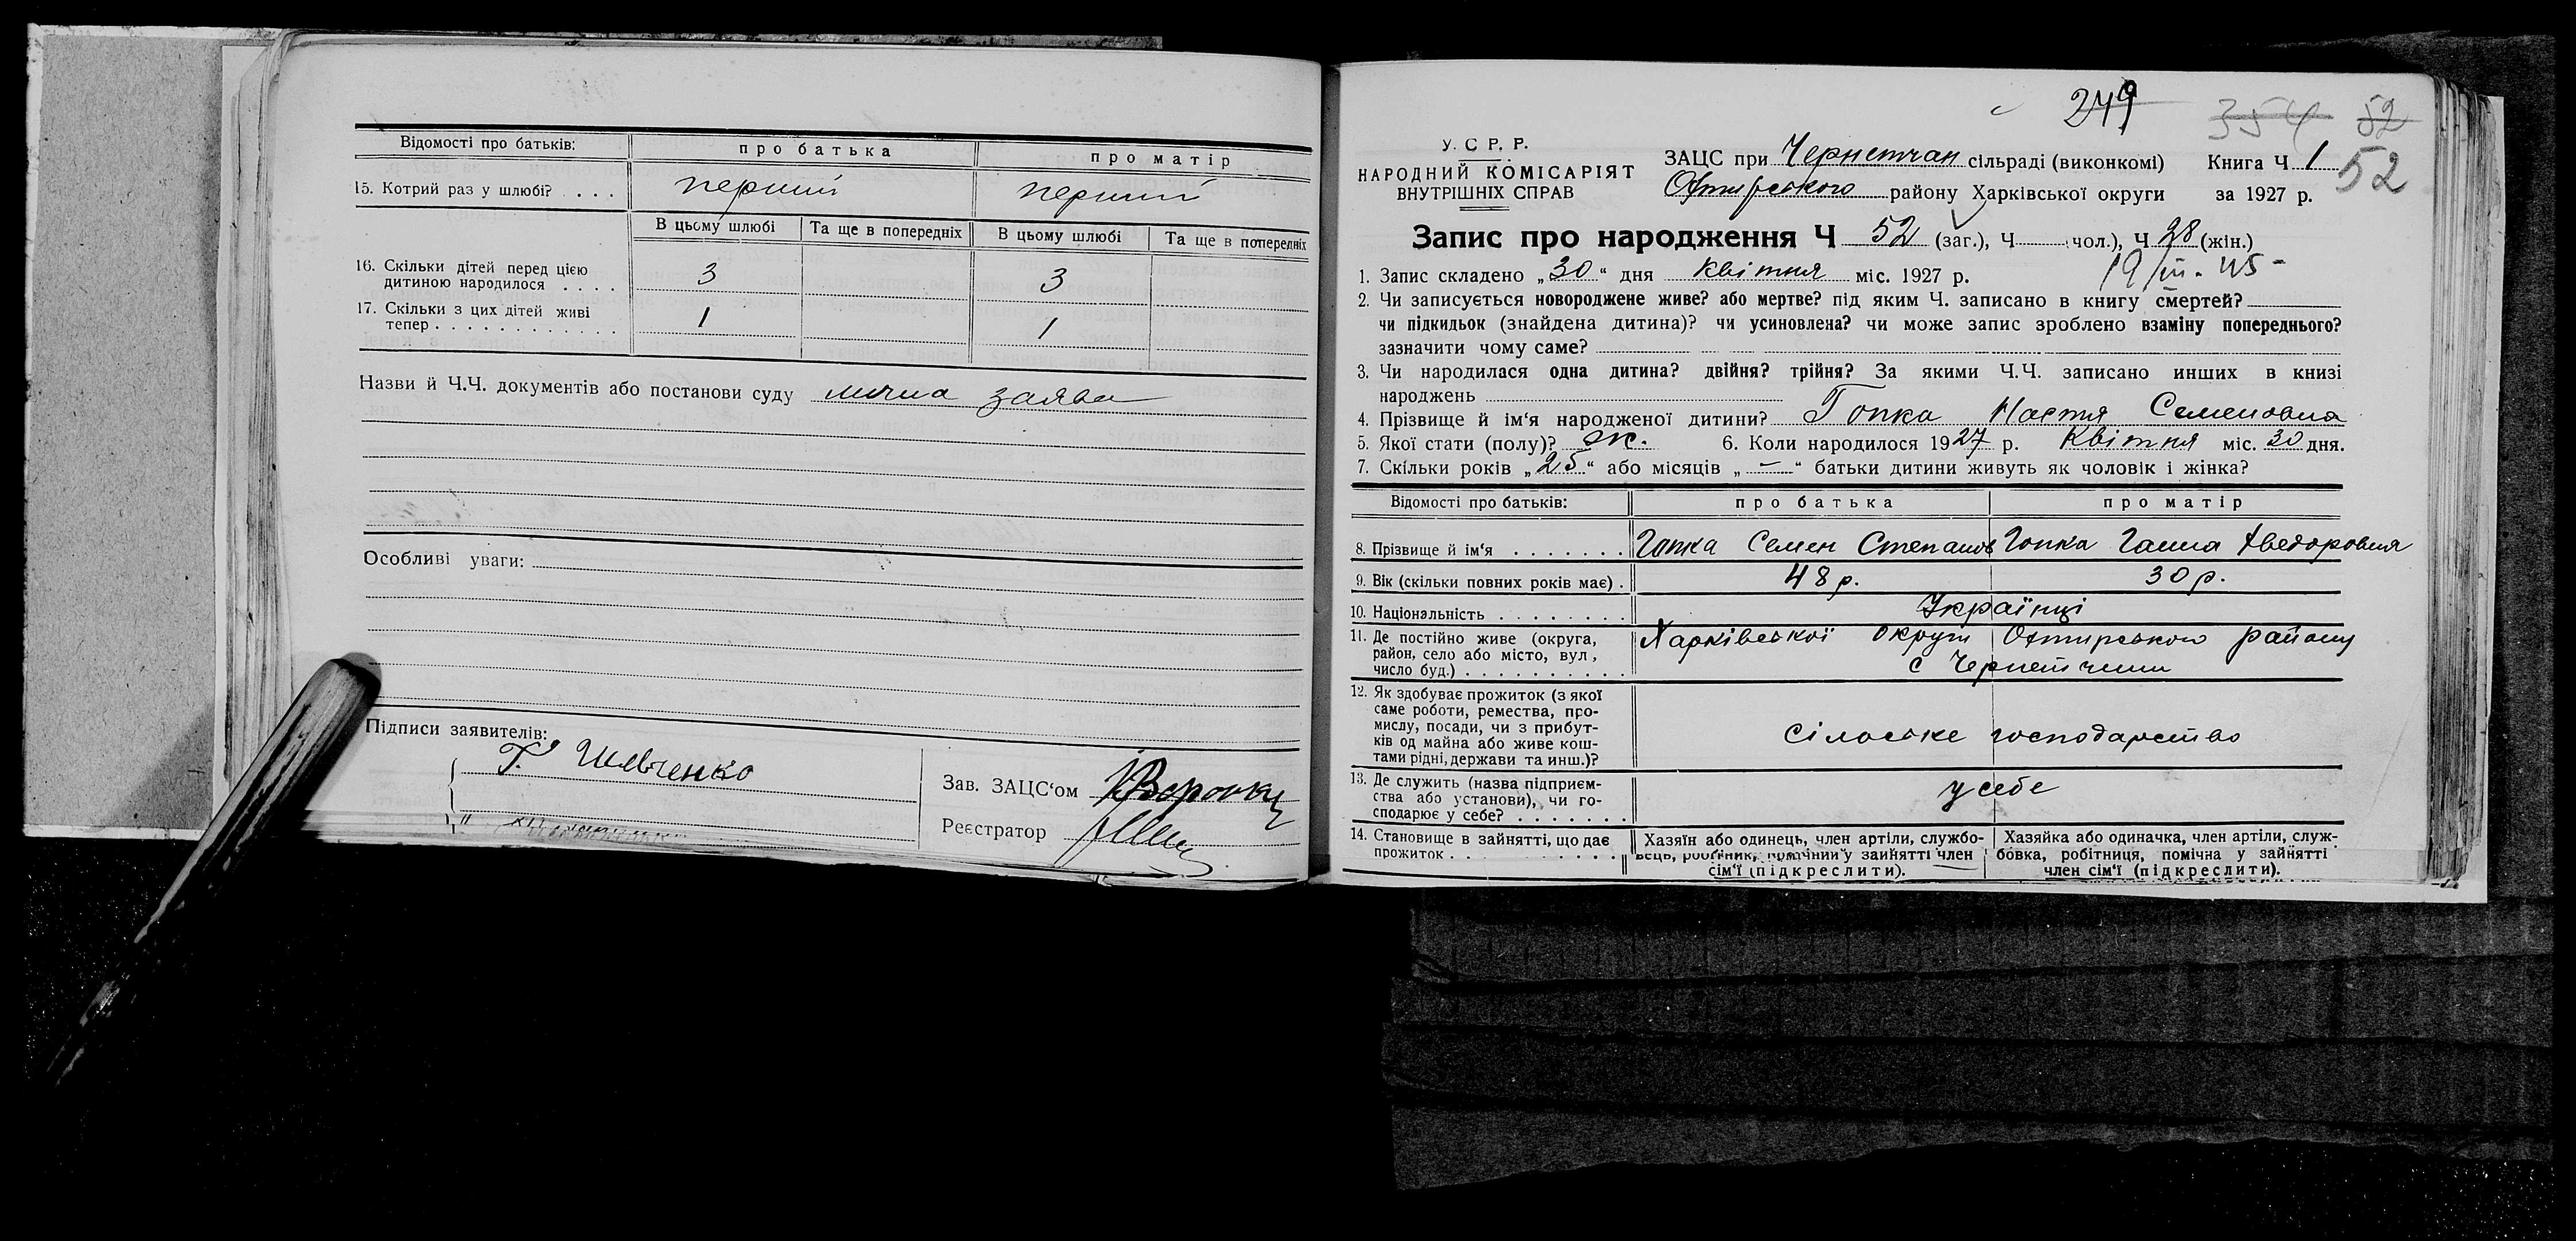 Відомості про батьків: про батька про матір
15. Котрий раз у шлюбі? . . . . перший перший
В цьому шлюбі Та ще в попередніх В цьому шлюбі Та ще в попередніх
16. Скільки дітей перед цією
дитиною народилося . . . . 3 3
17. Скільки з цих дітей живі
тепер . . . . . . . . . . . . . 1 1
Назви й Ч.Ч. документів або постанови суду лична заява
Особливі уваги:
Підписи заявителів:
Г. Шевченко
Зав. ЗАЦС‘ом
Реєстратор
249 354 52
У. С. Р. Р.
НАРОДНИЙ КОМІСАРІЯТ
ВНУТРІШНІХ СПРАВ
ЗАЦС при Чернетчан сільраді (виконкомі) Книга Ч 1
52
Охтирського району Харківської округи за 1927 р.
Запис про народження Ч 52 (заг.), Ч чол.), Ч 28 (жін.)
1. Запис складено „30“ дня квітня міс. 1927 р. 19/III-45-
2. Чи записується новороджене живе? або мертве? під яким Ч. записано в книгу смертей?
чи підкидьок (знайдена дитина)? чи усиновлена? чи може запис зроблено взаміну попереднього?
зазначити чому саме?
3. Чи народилася одна дитина? двійня? трійня? За якими Ч.Ч. записано инших в книзі
народжень
4. Прізвище й ім‘я народженої дитини? Гопка Настя Семеновна
5. Якої стати (полу)? ж. 6. Коли народилося 1927 р. Квітня міс. 30 дня.
7. Скільки років „25“ або місяців „—“ батьки дитини живуть як чоловік і жінка?
Відомості про батьків: про батька про матір
8. Прізвище й ім‘я . . . . . . . Гопка Семен Степанов Гопка Ганна Хведоровна
9. Вік (скільки повних років має) . 48 р. 30 р.
10. Національність . . . . . . . . Українці
11. Де постійно живе (округа,
район, село або місто, вул,
число буд.) . . . . . . . . . .
Харківської округи Охтирського району
с Чернетчини
12. Як здобуває прожиток (з якої
саме роботи, ремества, про-
мислу, посади, чи з прибут-
ків од майна або живе кош-
тами рідні, держави та инш.)?
сільське господарство
13. Де служить (назва підприєм-
ства або установи), чи го-
сподарює у себе? . . . . . . .
у себе
14. Становище в зайнятті, що дає
прожиток . . . . . . . . . . .
Хазяїн або одинець, член артіли, службо-
вець, робітник, помічний у зайнятті член
сім‘ї (підкреслити).
Хазяйка або одиначка, член артіли, служ-
бовка, робітниця, помічна у зайнятті
член сім‘ї (підкреслити).